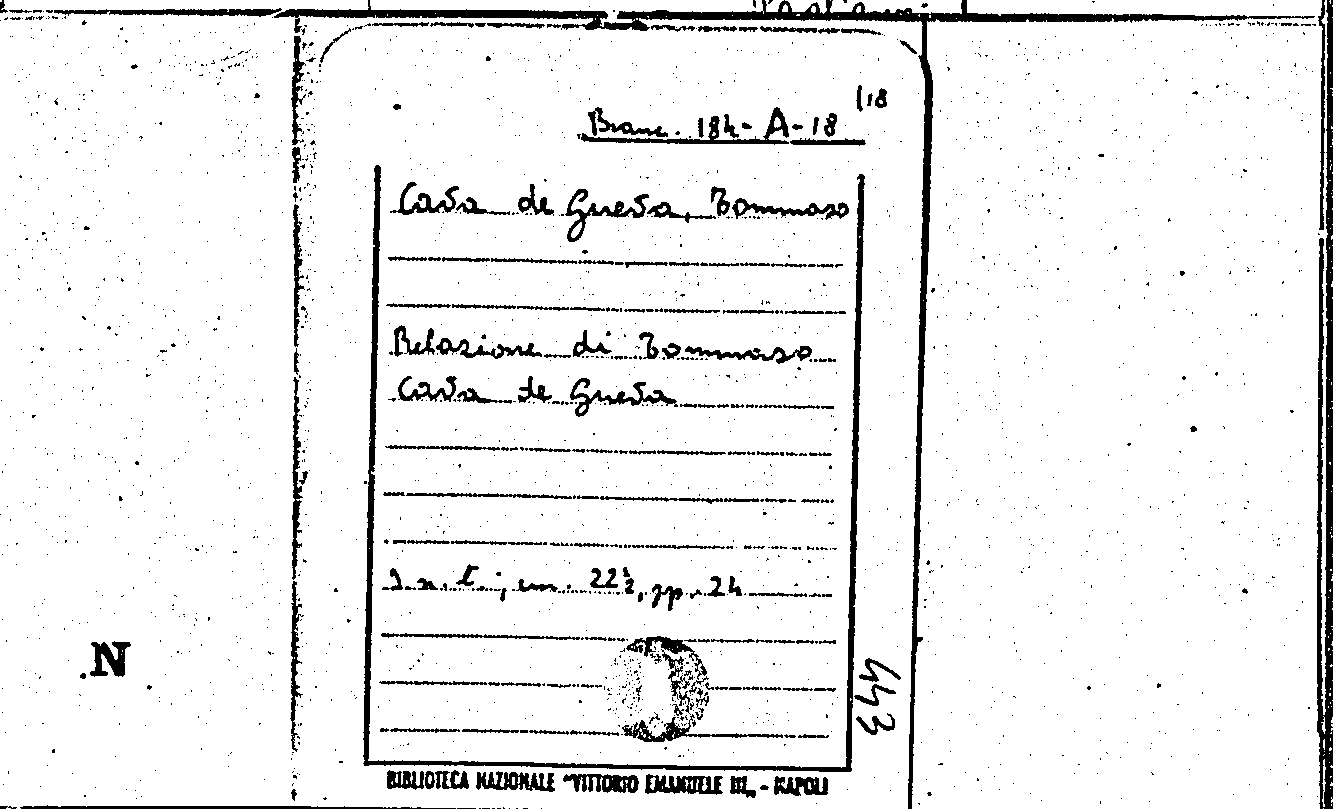 118
Branc. 184-A-18
de Tommaso
Relazione di Tommaso
de
S.n.t.; cm. 22½, pp. 24
443
N
BIBLIOTECA NAZIONALE "VITTORIO EMANUELE III„ - NAPOLI